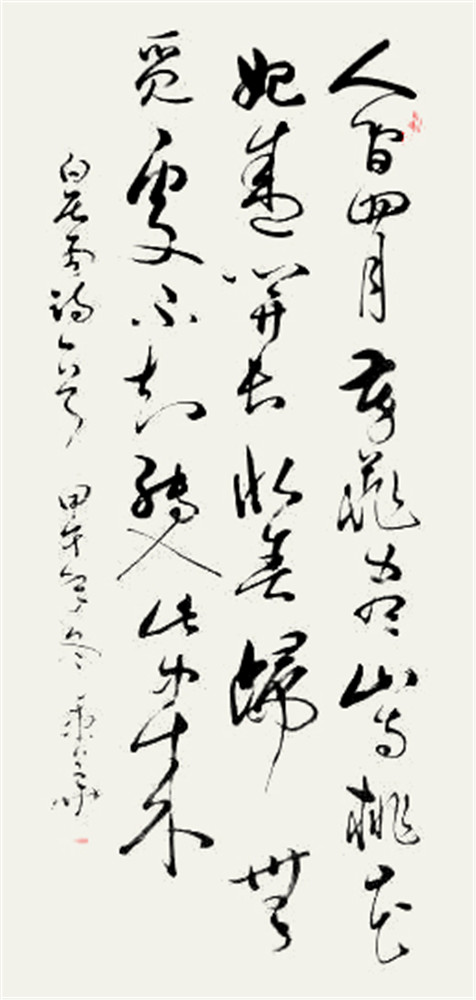 人間四月芳菲盡山寺桃花
始盛開長恨春歸無
覓處不知轉入此中來
白居易詩一首 甲午年冬